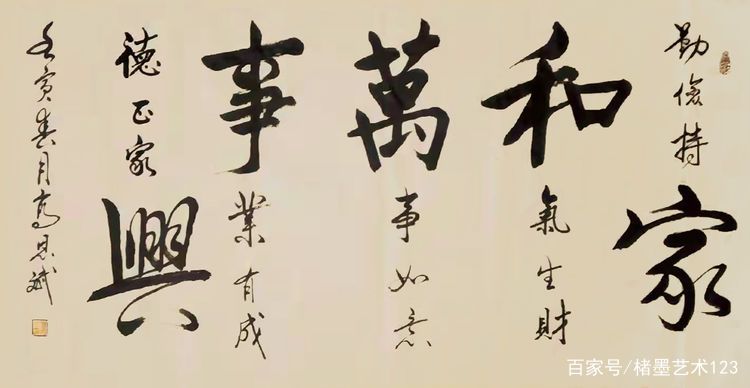 勤儉持家
和氣生財
萬事如意
事業有成
德正家興
壬寅春月高恩斌
百家号/楮墨艺术123